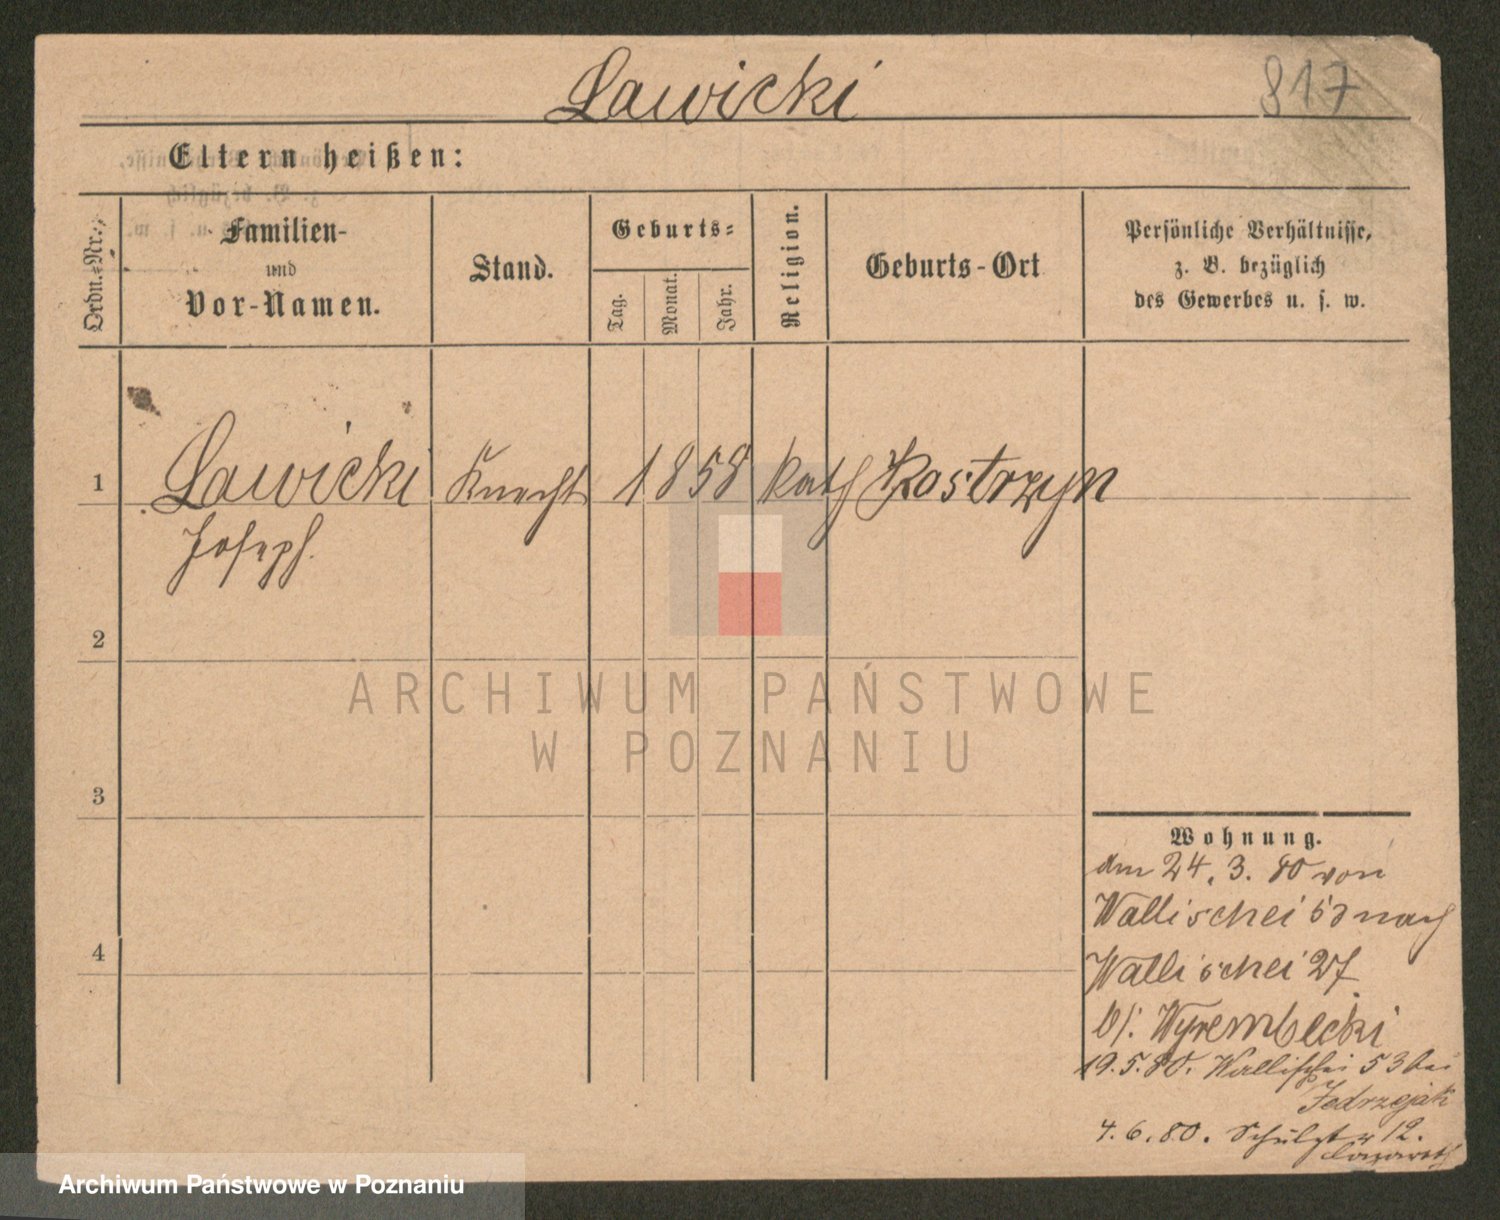 Lawicki
817
Eltern heißen:
Ordn.-Nr.
Familien-
und
Vor-Namen.
Stand.
Geburts-
Tag.
Monat.
Jahr.
Religion.
Geburts-Ort
Persönliche Verhältnisse,
z. B. bezüglich
des Gewerbes u. s. w.
1
Lawicki Knecht 1858 kath Kostrzyn
Joseph.
2
3
4
Wohnung.
den 24. 3. 80 von
Wallischei nach
Wallischei 27
b/. Wyrembecki
19. 5. 80. Wallischei 53 bei
Jedrzejak
4. 6. 80. 12.
Lazareth
ARCHIWUM PAŃSTWOWE
W POZNANIU
Archiwum Państwowe w Poznaniu